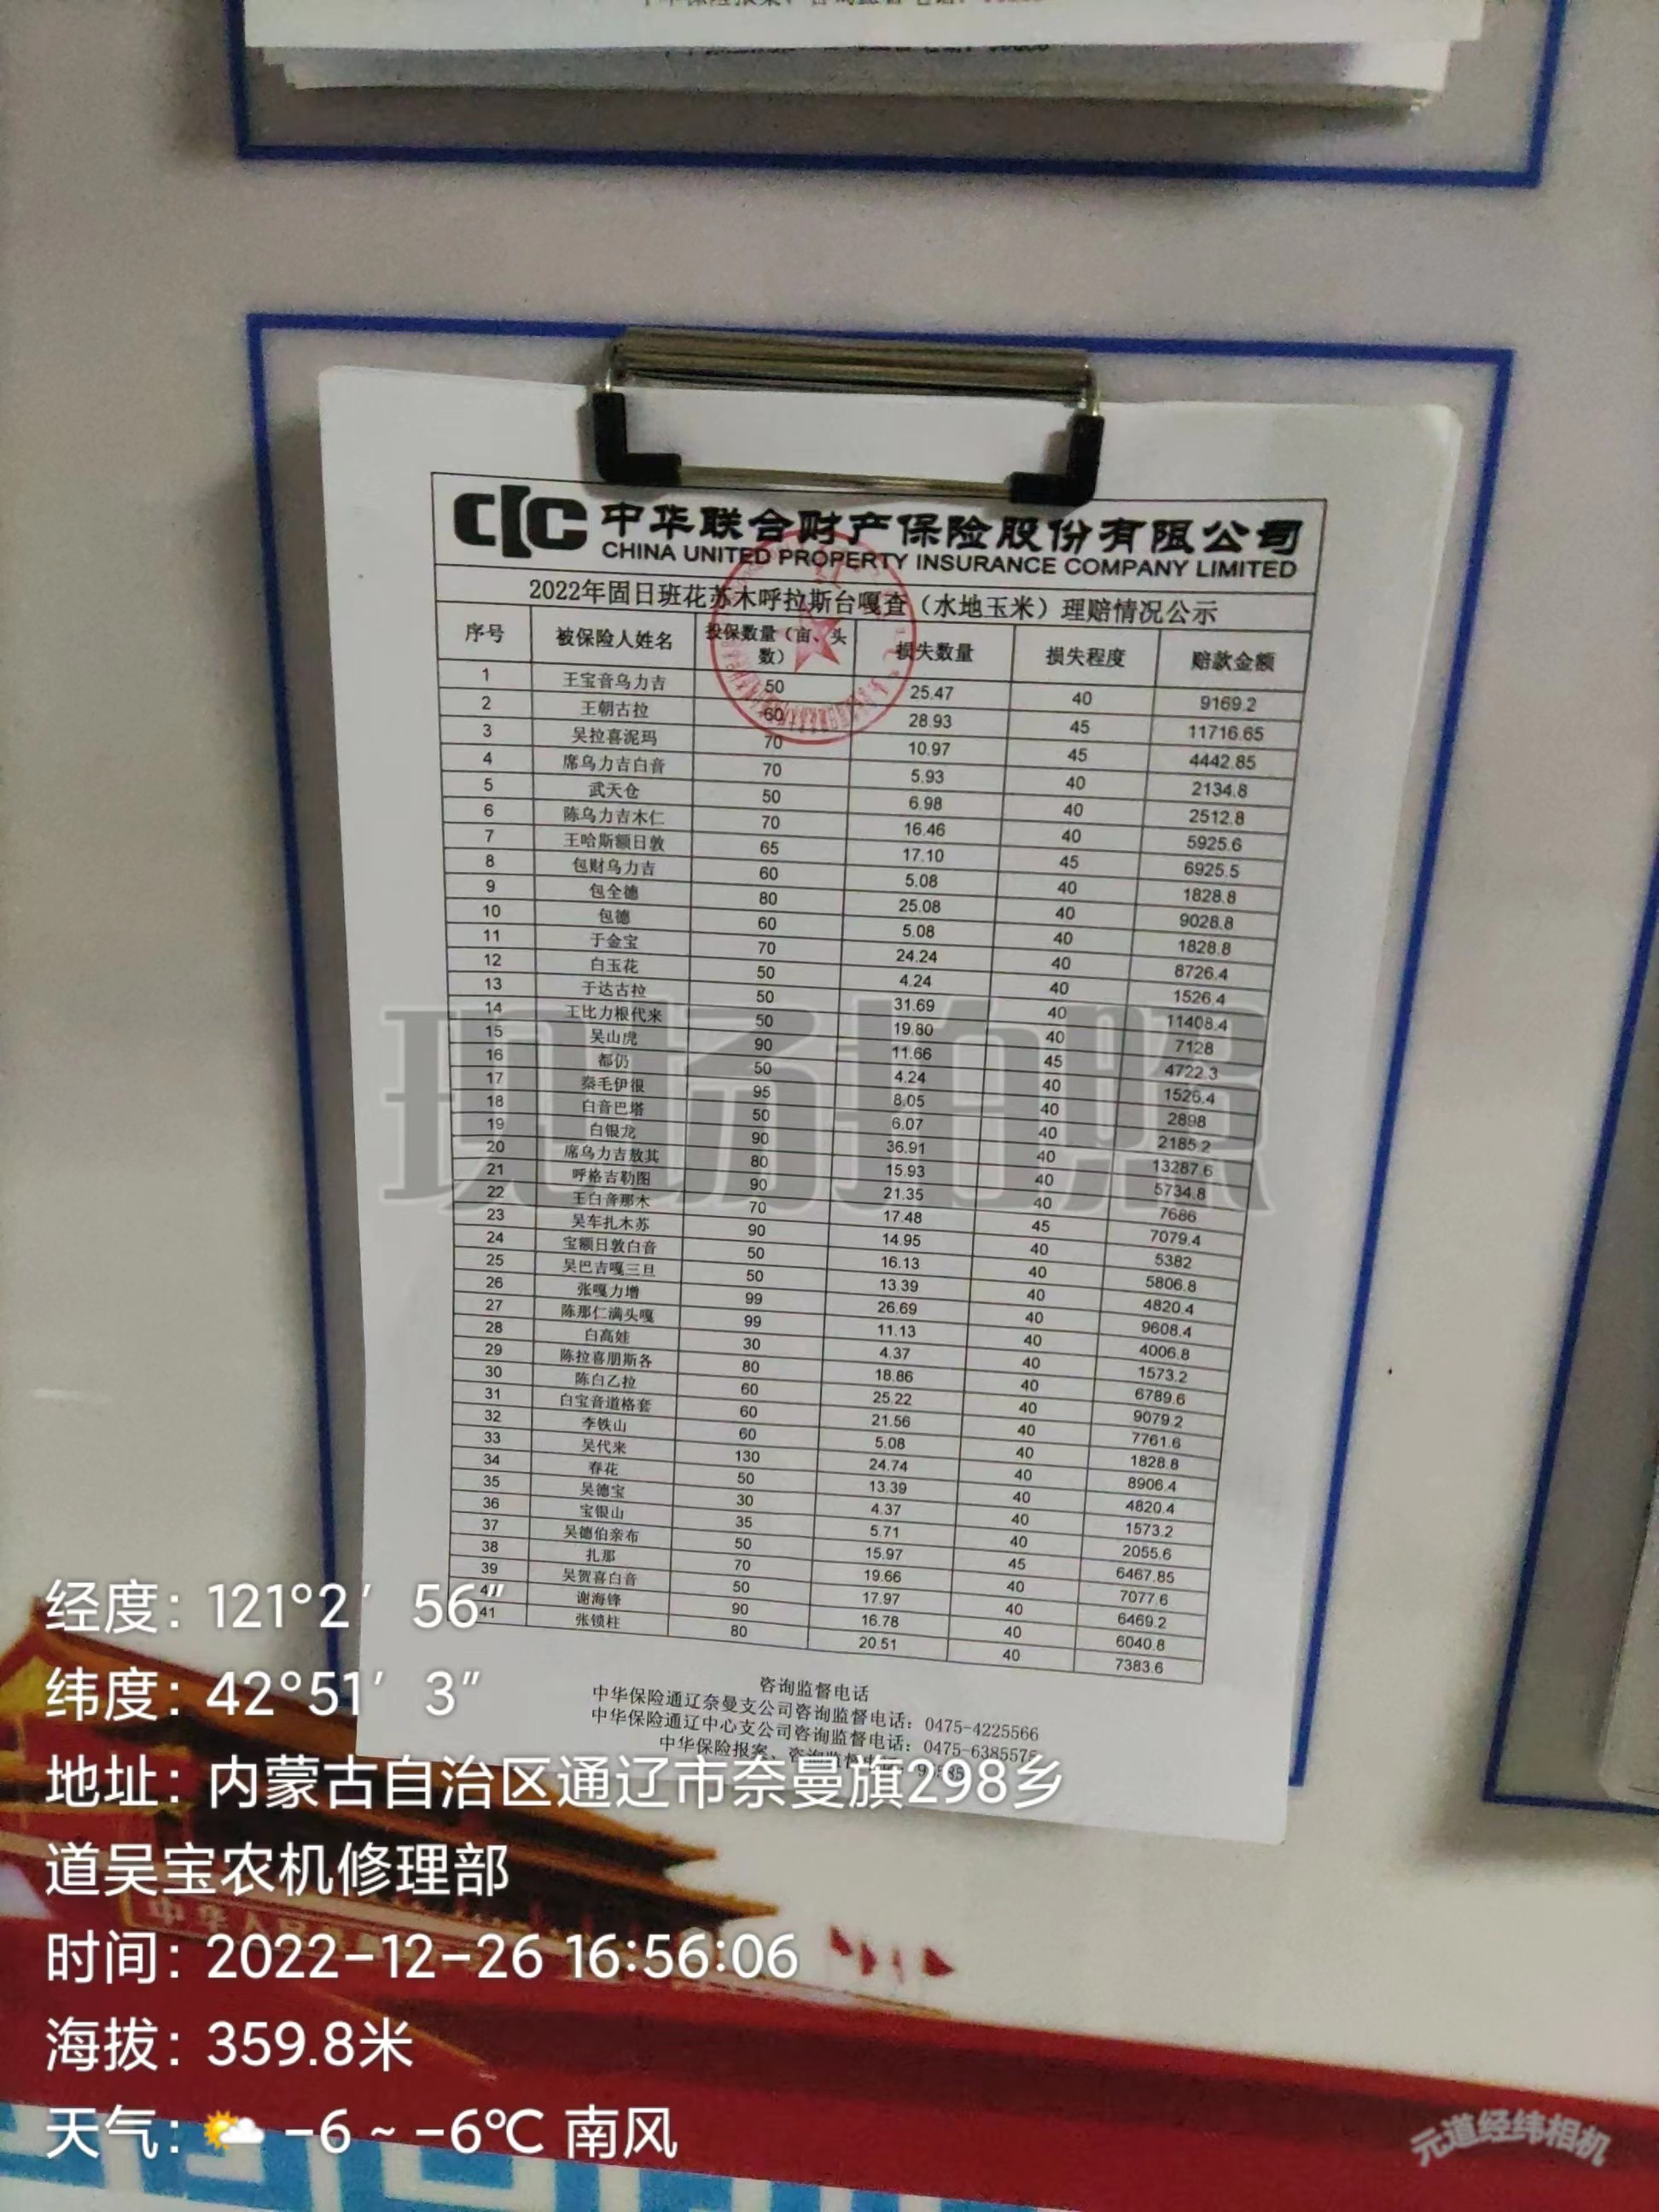 CIC 中华联合财产保险股份有限公司
CHINA UNITED PROPERTY INSURANCE COMPANY LIMITED
2022年固日班花苏木呼拉斯台嘎查（水地玉米）理赔情况公示
序号 被保险人姓名 投保数量（亩、头数） 损失数量 损失程度 赔款金额
1 王宝音乌力吉 50 25.47 40 9169.2
2 王朝古拉 60 28.93 45 11716.65
3 吴拉喜泥玛 70 10.97 45 4442.85
4 席乌力吉白音 70 5.93 40 2134.8
5 武天仓 50 6.98 40 2512.8
6 陈乌力吉木仁 70 16.46 40 5925.6
7 王哈斯额日敦 65 17.10 45 6925.5
8 包财乌力吉 60 5.08 40 1828.8
9 包全德 80 25.08 40 9028.8
10 包德 60 5.08 40 1828.8
11 于金宝 70 24.24 40 8726.4
12 白玉花 50 4.24 40 1526.4
13 于达古拉 50 31.69 40 11408.4
14 王比力根代来 50 19.80 40 7128
15 吴山虎 90 11.66 45 4722.3
16 都仍 50 4.24 40 1526.4
17 秦毛伊很 95 8.05 40 2898
18 白音巴塔 50 6.07 40 2185.2
19 白银龙 90 36.91 40 13287.6
20 席乌力吉敖其 80 15.93 40 5734.8
21 呼格吉勒图 90 21.35 40 7686
22 王白音那木 70 17.48 45 7079.4
23 吴车扎木苏 90 14.95 40 5382
24 宝额日敦白音 50 16.13 40 5806.8
25 吴巴吉嘎三旦 50 13.39 40 4820.4
26 张嘎力增 99 26.69 40 9608.4
27 陈那仁满头嘎 99 11.13 40 4006.8
28 白高娃 30 4.37 40 1573.2
29 陈拉喜朋斯各 80 18.86 40 6789.6
30 陈白乙拉 60 25.22 40 9079.2
31 白宝音道格套 60 21.56 40 7761.6
32 李铁山 60 5.08 40 1828.8
33 吴代来 130 24.74 40 8906.4
34 春花 50 13.39 40 4820.4
35 吴德宝 30 4.37 40 1573.2
36 宝银山 35 5.71 40 2055.6
37 吴德伯亲布 50 15.97 45 6467.85
38 扎那 70 19.66 40 7077.6
39 吴贺喜白音 50 17.97 40 6469.2
谢海锋 90 16.78 40 6040.8
41 张锁柱 80 20.51 40 7383.6
咨询监督电话
中华保险通辽奈曼支公司咨询监督电话：0475-4225566
中华保险通辽中心支公司咨询监督电话：0475-638557
中华保险报案、咨询监督电
现场拍照
经度：121°2′56″
纬度：42°51′3″
地址：内蒙古自治区通辽市奈曼旗298乡
道吴宝农机修理部
时间：2022-12-26 16:56:06
海拔：359.8米
天气：-6 ~ -6℃ 南风
元道经纬相机